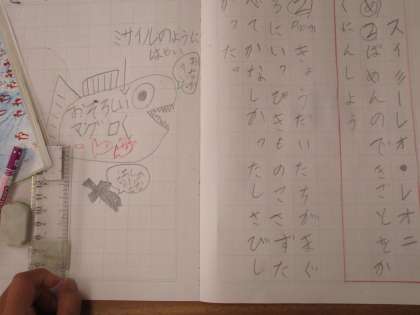 スイミー レオ・レオニ
め ②ばめんのできごとをか
くにんしよう
② きょうだいたちがまぐ
ろにいっぴきものこさずた
べてかなしかったしさびし
かった。
ミサイルのように
はやい
おそろしい
マグロ